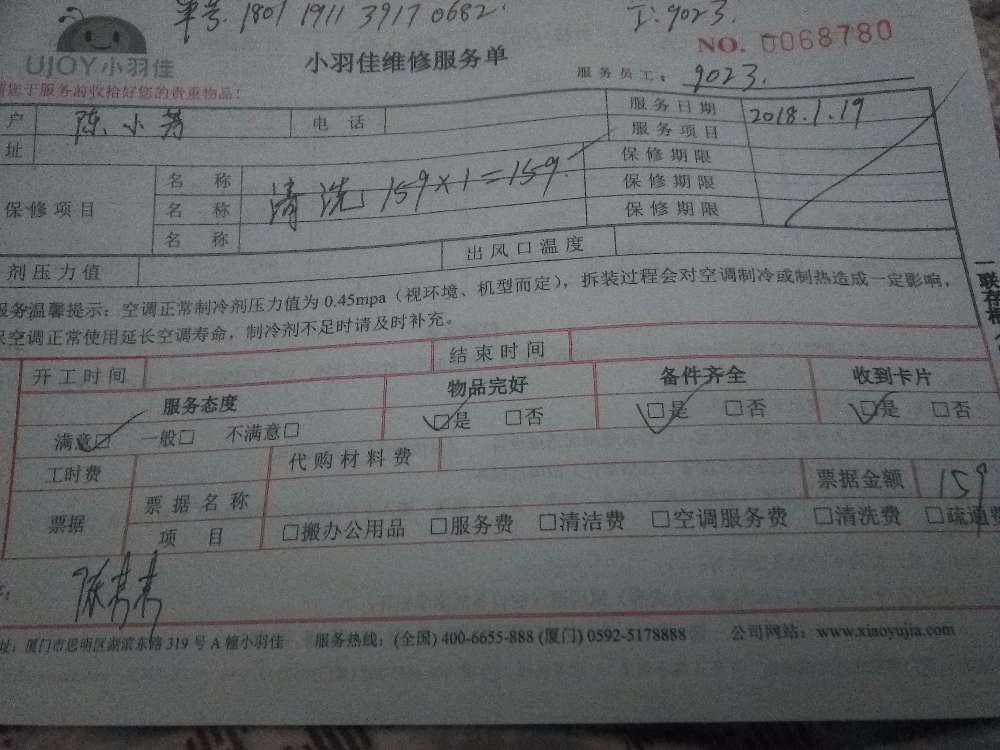 单号. 1801 1911 3917 0682. 工: 9023.
NO. 0068780
UJOY小羽佳
小羽佳维修服务单
服务员工: 9023.
您于服务前收拾好您的贵重物品!
户 陈小芳 电话 服务日期 2018.1.19
址 服务项目
保修项目 名称 清洗 159×1=159. 保修期限
名称 保修期限
名称 保修期限
剂压力值 出风口温度
服务温馨提示: 空调正常制冷剂压力值为0.45mpa(视环境、机型而定), 拆装过程会对空调制冷或制热造成一定影响,
保空调正常使用延长空调寿命, 制冷剂不足时请及时补充。
一联存根
开工时间 结束时间
服务态度 物品完好 备件齐全 收到卡片
满意□ 一般□ 不满意□ □是 □否 □是 □否 □是 □否
工时费 代购材料费
票据 票据名称 票据金额 159
项目 □搬办公用品 □服务费 □清洁费 □空调服务费 □清洗费 □疏通费
址: 厦门市思明区湖滨东路319号A幢小羽佳 服务热线: (全国) 400-6655-888 (厦门) 0592-5178888 公司网站: www.xiaoyujia.com